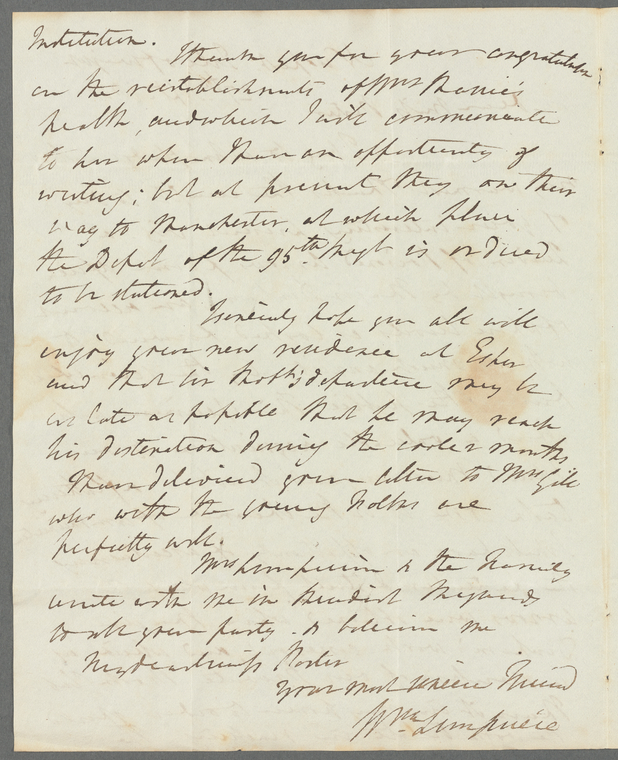 Institution.
I thank you for your congratulation
on the reestablishments of Mrs
health, and which I will communicate
to her when I have an opportunity of
writing; but at present they are on their
way to Manchester, at which place
the Depot of the 95th Regt is ordered
to be stationed.
I sincerely hope you all will
enjoy your new residence at Esher
and that Sir Robt's departure may be
as late as possible that he may reach
his destination during the cooler months
I have delivered your letter to Mrs Gill
who with the young Folks are
perfectly well.
Mrs Lempriere & the Family
unite with me in kindest Regards
to all your party. & believe me
My dear Miss Porter
Your most sincere Friend
Wm Lempriere